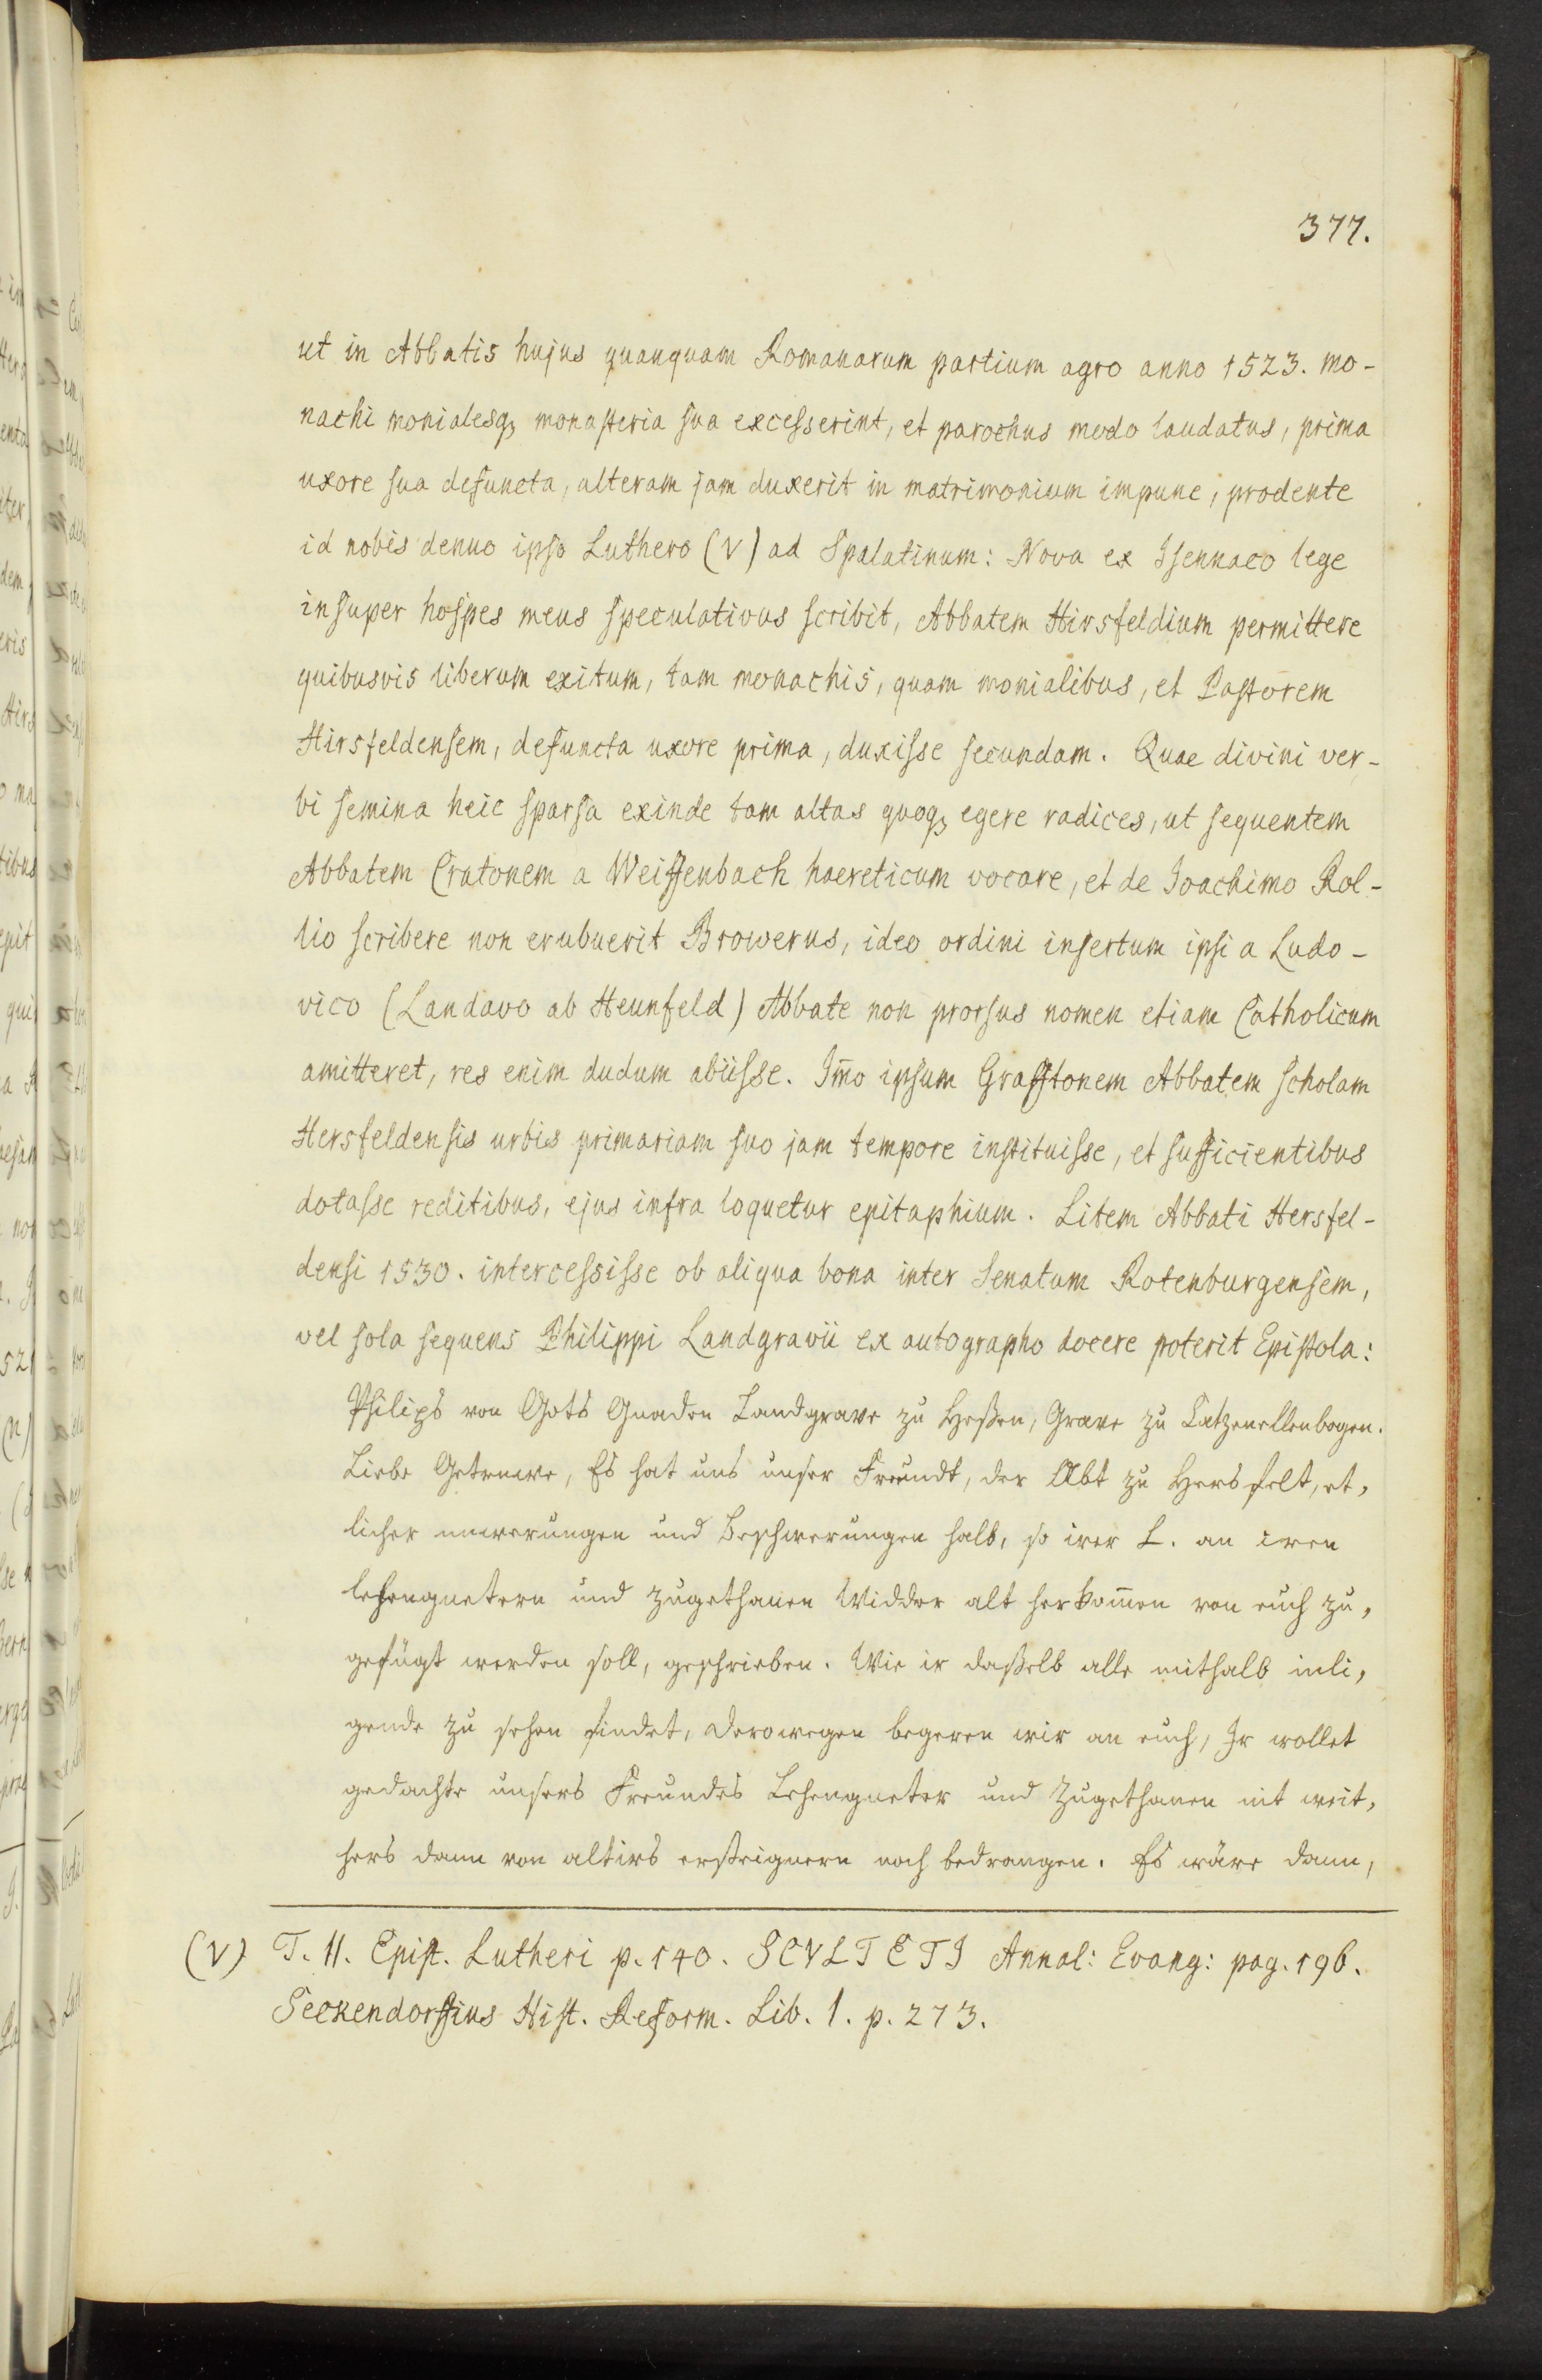 377.
ut in Abbatis hujus quanquam Romanarum partium agro anno 1523. mo-
nachi monialesq; monasteria sua excesserint, et parochus modo laudatus, prima
uxore sua defuncta, alteram jam duxerit in matrimonium impune, prodente
id nobis denuo ipso Luthero (V) ad Spalatinum: Nova ex Isennaco lege
insuper hospes meus speculativus scribit, Abbatem Hirsfeldium permittere
quibusvis liberum exitum, tam monachis, quam monialibus, et Pastorem
Hirsfeldensem, defuncta uxore prima, duxisse secundam. Quae divini ver-
bi semina heic sparsa exinde tam altas quoq; egere radices, ut sequentem
Abbatem Cratonem a Weissenbach haereticum vocare, et de Joachimo Rol-
lio scribere non erubuerit Browerus, ideo ordini insertum ipsi a Ludo-
vico (Landavo ab Heunfeld) Abbate non prorsus nomen etiam Catholicum
amitteret, res enim dudum abiisse. Im̄o ipsum Grafftonem Abbatem scholam
Hersfeldensis urbis primariam suo jam tempore instituisse, et sufficientibus
dotasse reditibus, ejus infra loquetur epitaphium. Litem Abbati Hersfel-
densi 1530. intercessisse ob aliqua bona inter Senatum Rotenburgensem,
vel sola sequens Philippi Landgravii ex autographo docere poterit Epistola:
Philips von Gots Gnaden Landgrave zu Heßen, Grave zu Catzenellenbogen.
Liebe Getrewe, Es hat uns unser Freundt, der Abt zu Hersfelt, et,
licher newerungen und Beschwerungen halb, so irer L. an iren
lehenguetern und zugethanen Widder alt herkom̄en von euch zu,
gefügt werden soll, geschrieben. Wie ir daßelb alle mithalb inli,
gende zu sehen findet, derowegen begeren wir an euch, Ir wollet
gedachte unsers Freundes Lehengueter und Zugethanen nit weit,
hers dann von alters noch bedrangen. Es wäre dann,
(V) T. II. Epist. Lutheri p. 140. SCVLTETI Annal: Evang: pag. 196.
Seckendorffius Hist. Reform. Lib. 1. p. 273.